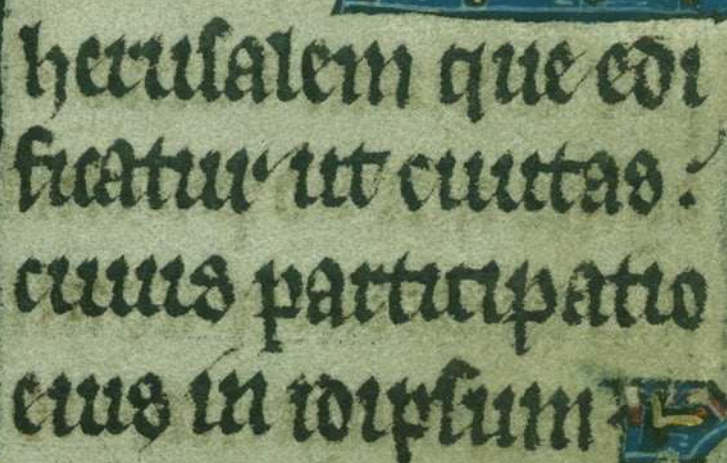 heruſalem que edi
ficatur ut ciuitas :
cuius participatio
eius in idipſum